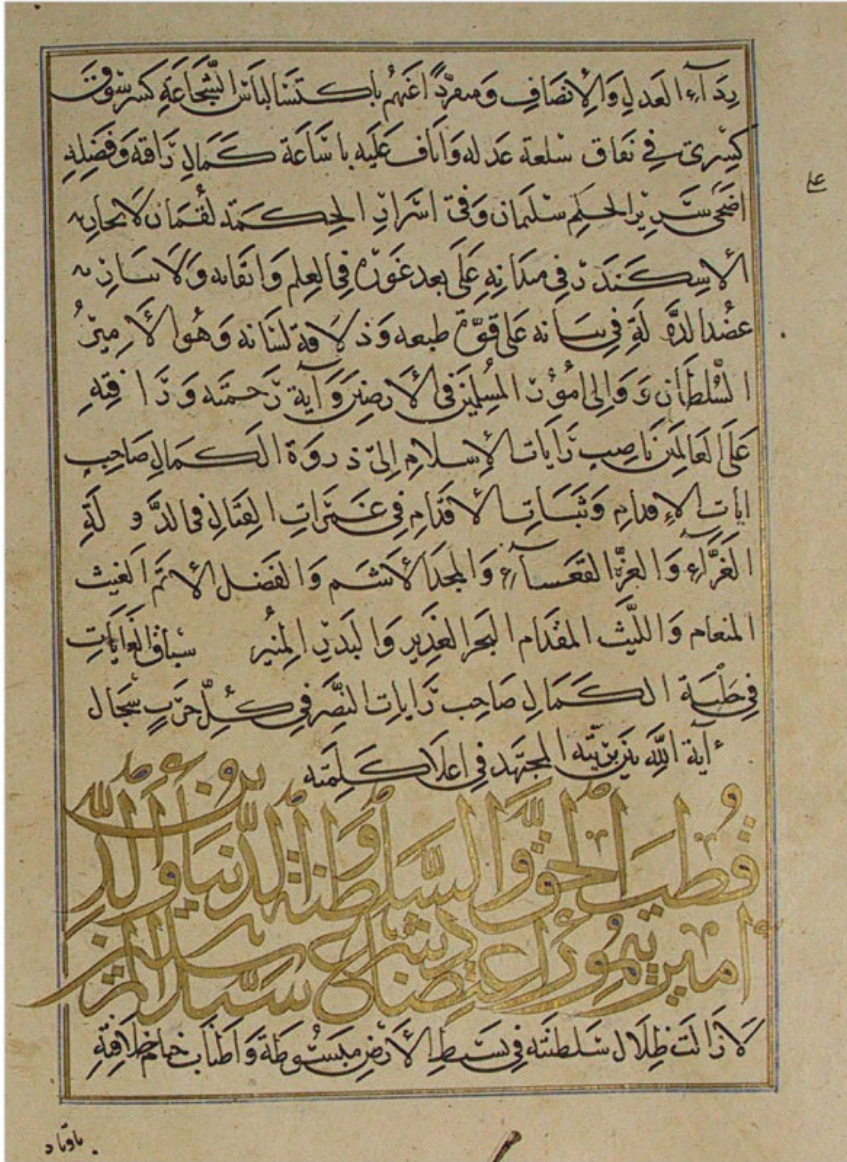 بِرِدَآءِ العَدلِ وَالإنصَافِ وَمنفرِّدًا عَنهُم بِاكتسَاء لبَاسِ الشَّجَاعَةِ كسر سُوقَ
كِسْرىٰ في نفاق سلعة عدله وَاناف عَليه باشَاعَة كَمالِ رَافته وَفضلِهِ
اضحىٰ سَرِيرَ الحلم سليمان وَفى اسْرارِ الحِكمَة لقمَان لا يجاريه
الاسِكندر في ميدانهِ عَلى بعد غورِه فى العِلم وَاتقانه وَلا يسَاويه
عضُد الدَّولَةِ في بيَانه عَلى قوّة طبعه وَذلاقة لسَانه وَهُوَ الأَمِيرُ
السُّلطَان وَوَالى امُورِ المُسلِمينَ فى الأرضينَ وَآية رَحمَته وَرَافتِهِ
عَلى العَالمينَ نَاصِب رَايات الإسلَامِ إلىٰ ذروَة الكَمالِ صَاحِب
ايَاتِ الإقدامِ وَثبَاتِ الأقدَامِ فِي غمَرَاتِ القتَالِ فى الدَّولَةِ
الغَرَّآءِ وَالعِزَّة القعسَآءِ وَالمجدَ الأشم وَالفَضل الأتمّ الغَيث
المنعام وَالليَّث المقدَام البَحر الغَدِير وَالبدر المُنير سبّاق الغايَاتِ
فى حَلبَة الكَمَالِ صَاحِب رَايَات النَّصر فى كلّ حَربٍ سجَال
آية الله بين بريّته المجتهد في اعلَاء كلِمَته
قُطب الحق وَالسَّلطنة وَالدّنيا وَالدّين
امير تيمور اعتضَاد شرع سيّد المرسلين
لَا زَالَت ظِلَال سَلطنَته في بَسيطِ الأَرضِ مَبسُوطَة وَاطنَاب خيام خِلَافتِهِ
باوتاد